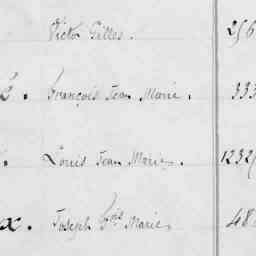 Victor Gilles.
François Jean Marie. 333
Louis Jean Marie. 1232
x. Joseph fois Marie. 48